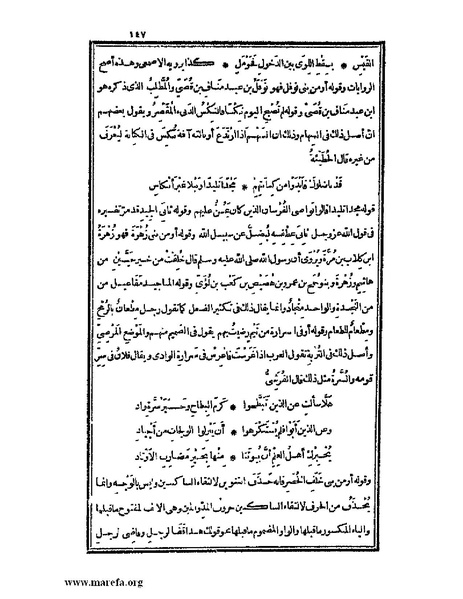 ١٤٧
القيس * بسقط اللوى بين الدخول فحومل * كذا يرويه الاصمعى وهذه أصح
الروايات وقوله أو من بنى نوفل فهو نوفل بن عبد مناف بن قصى والمطلب الذى ذكره هو
ابن عبد مناف بن قصى وقوله لم تصبح اليوم نكسا فالنكس الدنىء المقصر ويقول بعضهم
ان أصل ذلك فى السهام وذلك ان السهم اذا ارتدع أو ناله آفة نكس فى الكنانة ليعرف
من غيره قال الحطيئة
قد ناضلوك فأبدوا من كنانتهم * مجدا تليدا ونبلا غير أنكاس
قوله مجدا تليدا قالوا نواصى الفرسان الذين كان يمن عليهم وقوله ثانى الجيد قد مر تفسيره
فى قول الله عز وجل ثانى عطفه ليضل عن سبيل الله وقوله أو من بنى زهرة فهو زهرة
ابن كلاب بن مرة ويروى أن رسول الله صلى الله عليه وسلم قال خلقت من خير حيين من
هاشم وزهرة وبنو جمح بن عمرو بن هصيص بن كعب بن لؤى وقوله المناجيد مفاعيل من
النجدة والواحد منجاد وانما يقال ذلك فى تكثير الفعل كما تقول رجل مطعان بالرمح
ومطعام للطعام وقوله أو فى سرارة من تيم رضيت بهم يقول فى الصميم منهم والموضع المرضى
وأصل ذلك فى التربة تقول العرب اذا غرست فاغرس فى سرارة الوادى ويقال فلان فى سر
قومه والسرة مثل ذلك قال القرشى
هلا سألت عن الذين تبطحوا * كرم البطاح وخير سرة واد
وعن الذين أبوا فلم يستكرهوا * أن ينزلوا الولجات من أجياد
يخبرك أهل العلم أن بيوتنا * منها بخير مضارب الأوتاد
وقوله أو من بنى خلف الخضر فانه حذف التنوين لالتقاء الساكنين وليس بالوجه وانما
يحذف من الحرف لالتقاء الساكنين حروف المد واللين وهى الالف المفتوح ما قبلها
والياء المكسور ما قبلها والواو المضموم ما قبلها نحو قولك هذا قفا الرجل وقاضى الرجل
www.marefa.org